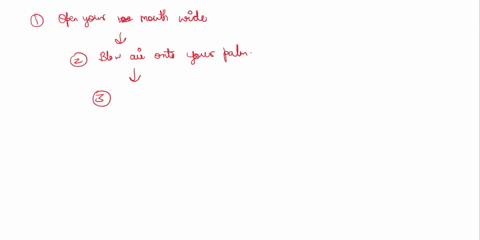 ① Open your mouth wide
② Blow air onto your palm.
③